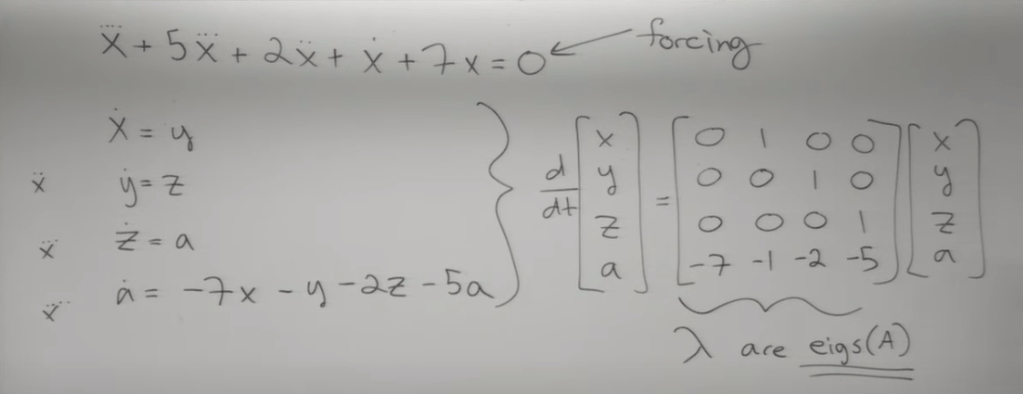 x⃜ + 5x⃛ + 2ẍ + ẋ + 7x = 0 ← forcing
ẋ = y
ẍ ẏ = z
x⃛ ż = a
x⃜ ȧ = -7x - y - 2z - 5a
d/dt [x y z a] = [0 1 0 0; 0 0 1 0; 0 0 0 1; -7 -1 -2 -5] [x y z a]
λ are eigs(A)